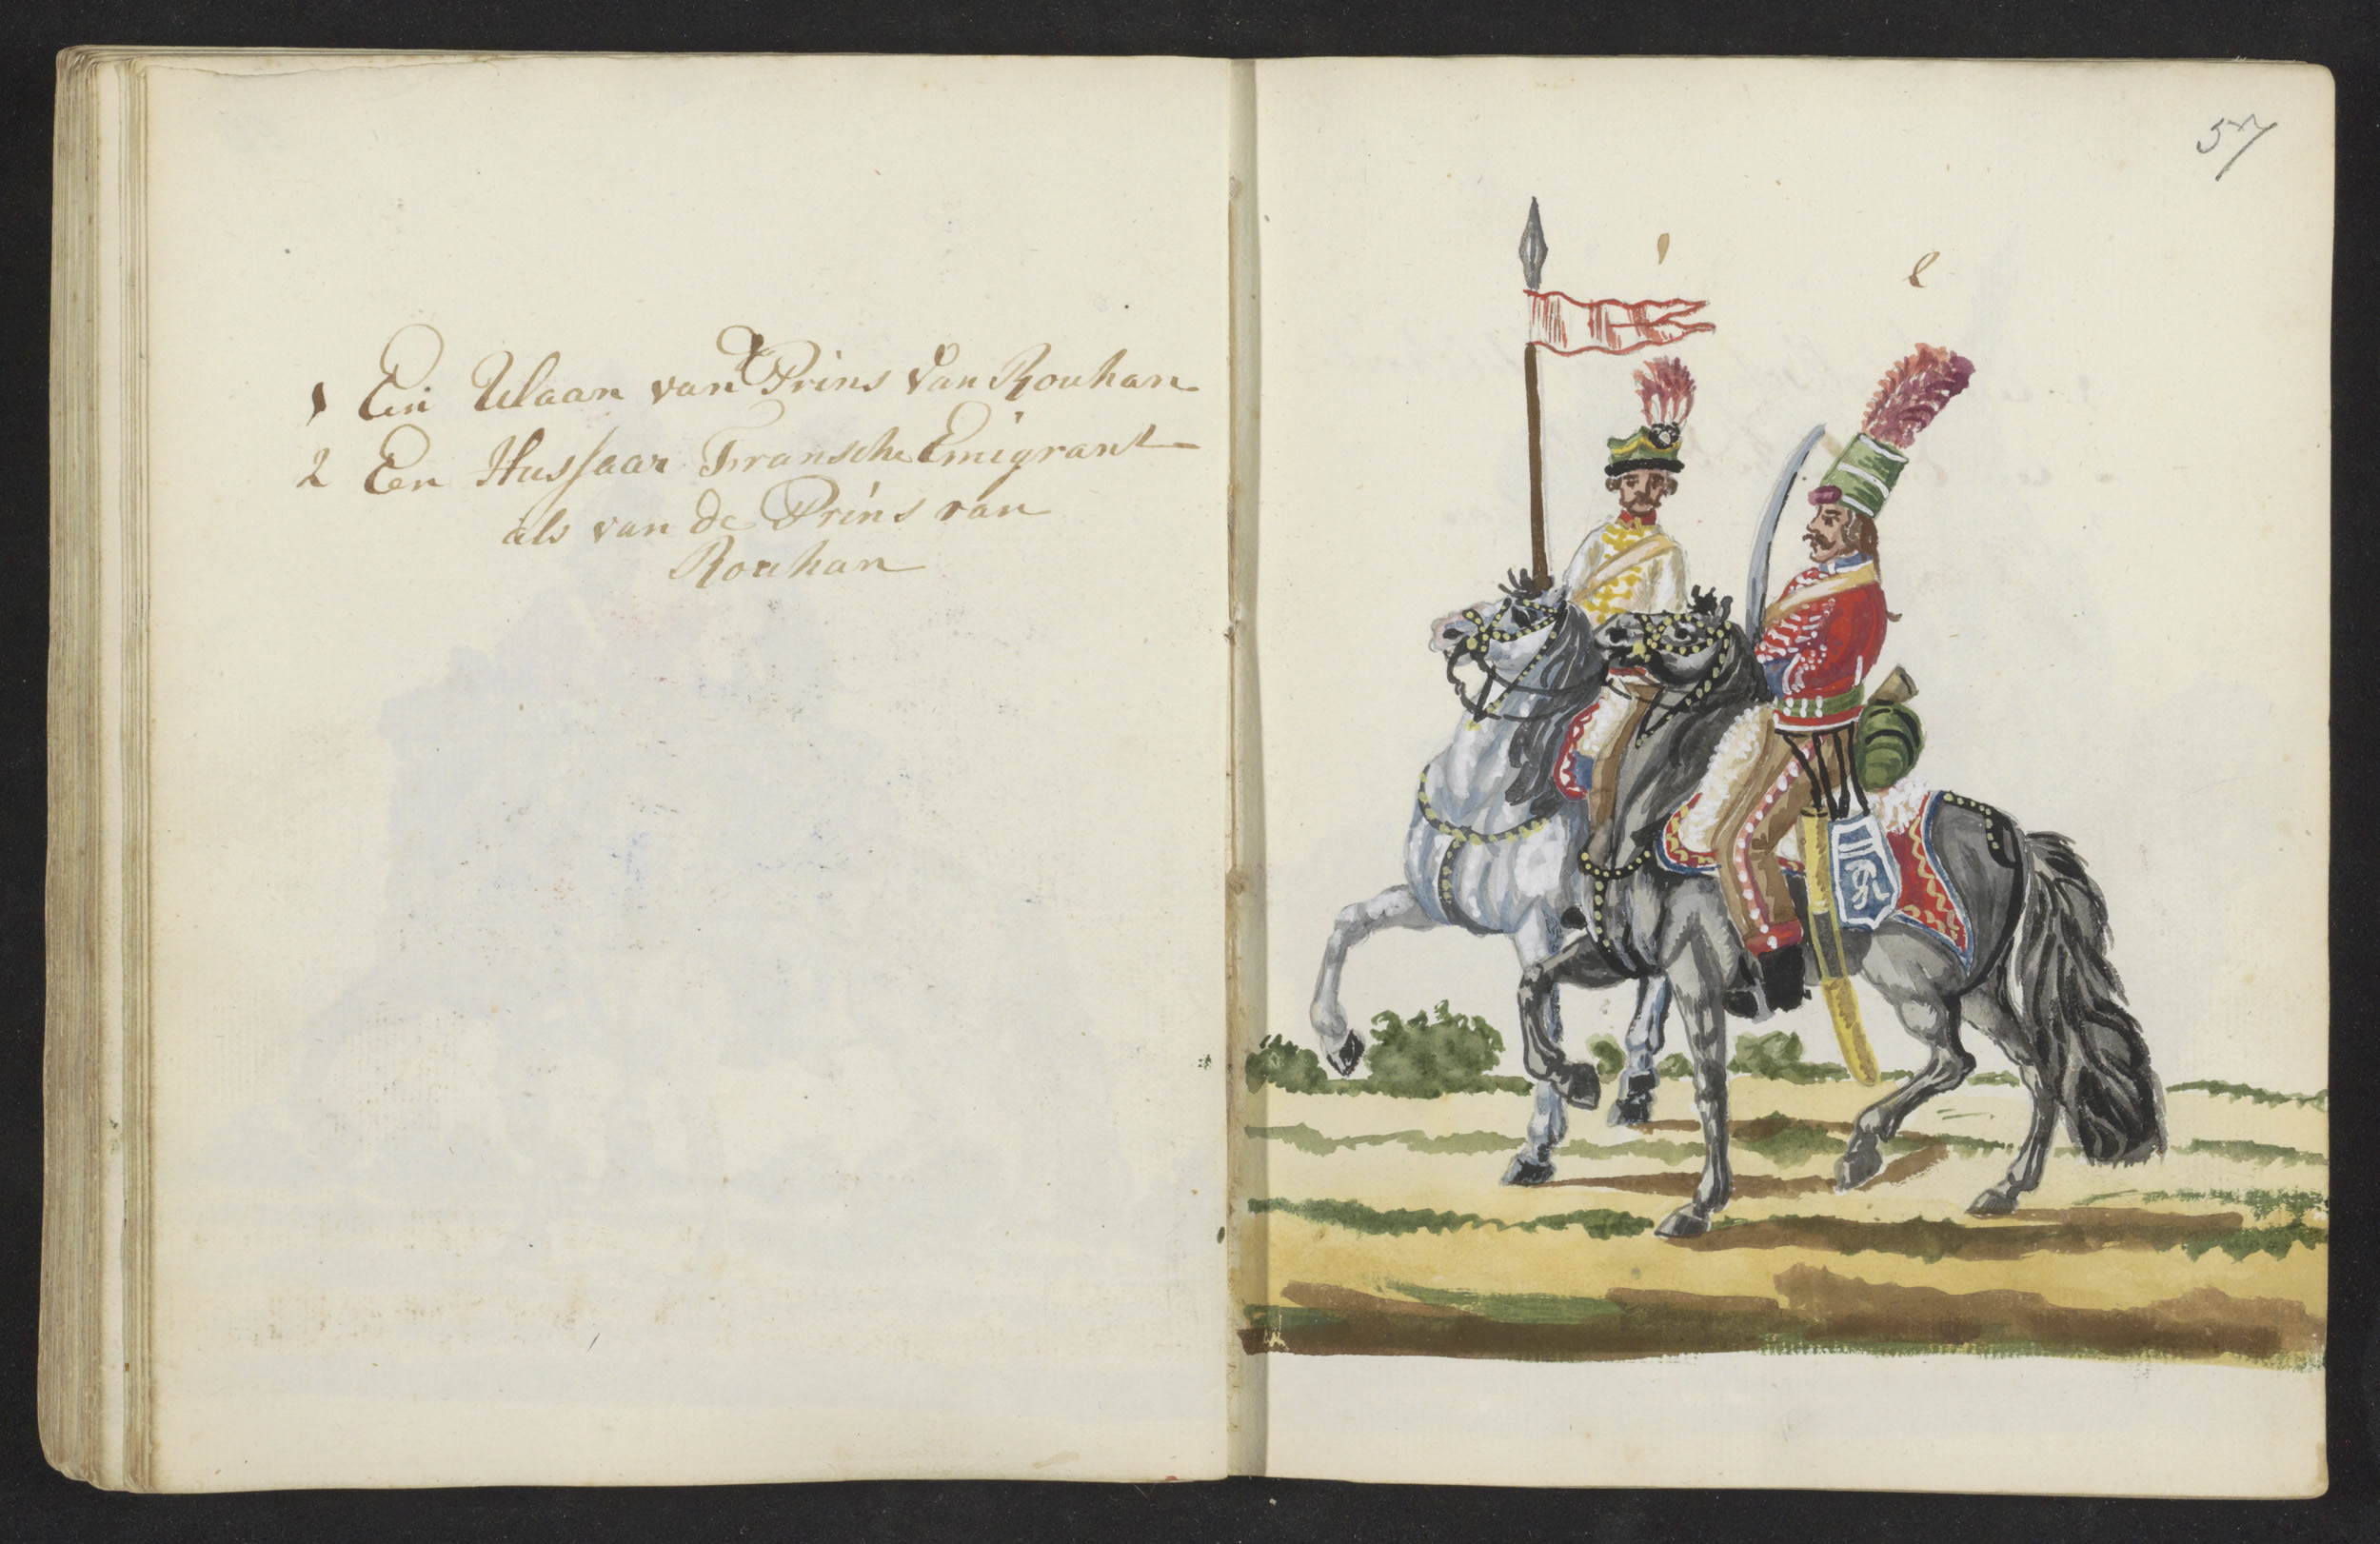 1 Een Ulaan van Prins van Rouhan
2 Een Hussaar Fransche Emigrant
als van de Prins van
Rouhan
57
1 2